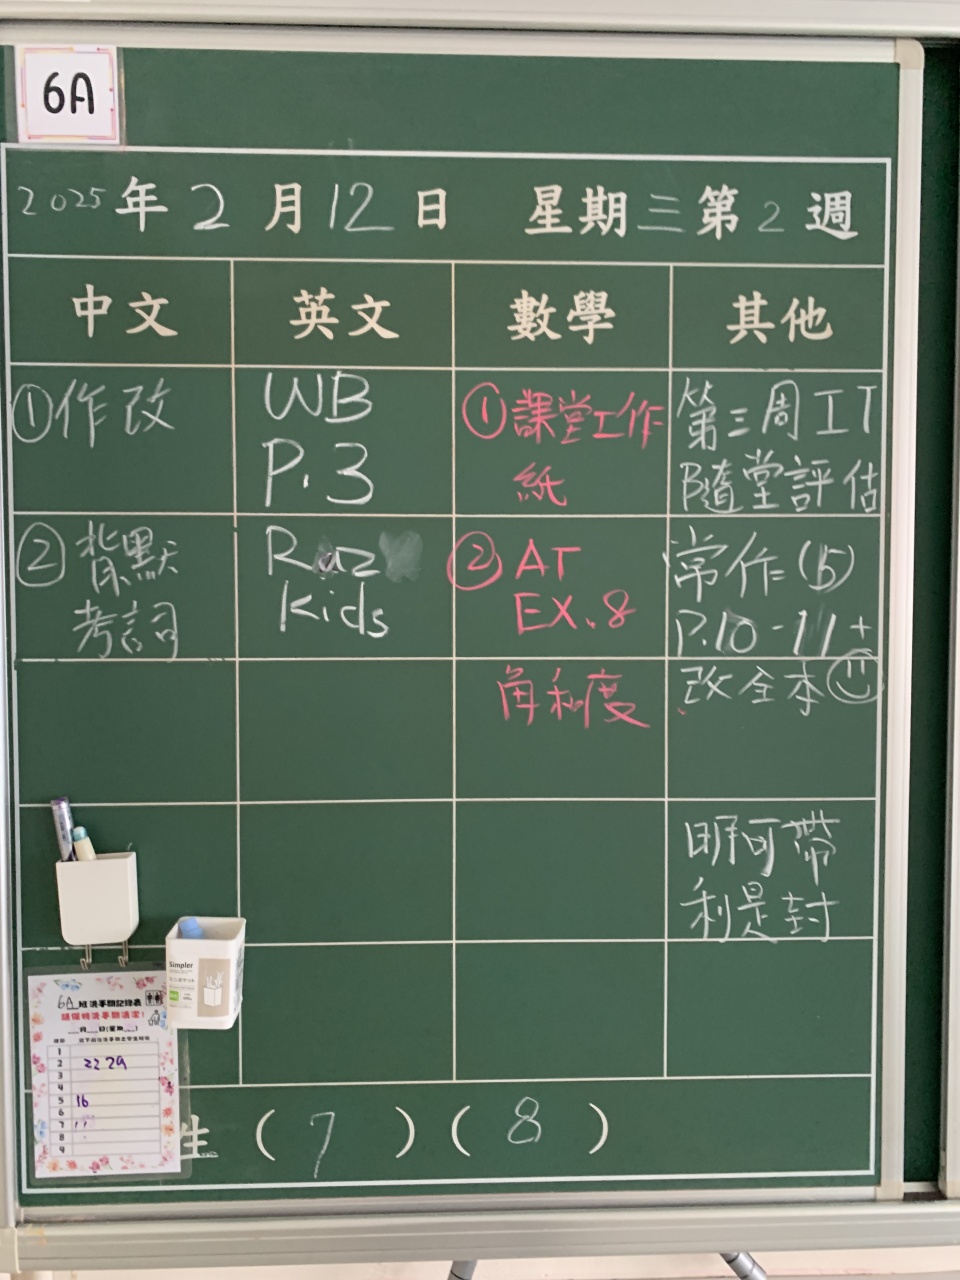 6A
2025年2月12日 星期三第2週
中文 英文 數學 其他
①作改
②背默
考詞
WB
P.3
Raz
Kids
①課堂工作
紙
②AT
EX.8
角和度
第三周工T
B隨堂評估
常作(5)
P.10-11+
改全本
明可帶
利是封
Simpler
6A 班洗手間記錄表
請保持洗手間清潔!
月 日(星期 )
1
2 22 29
3
4
5 16
6
7
8
9
生 (7)(8)